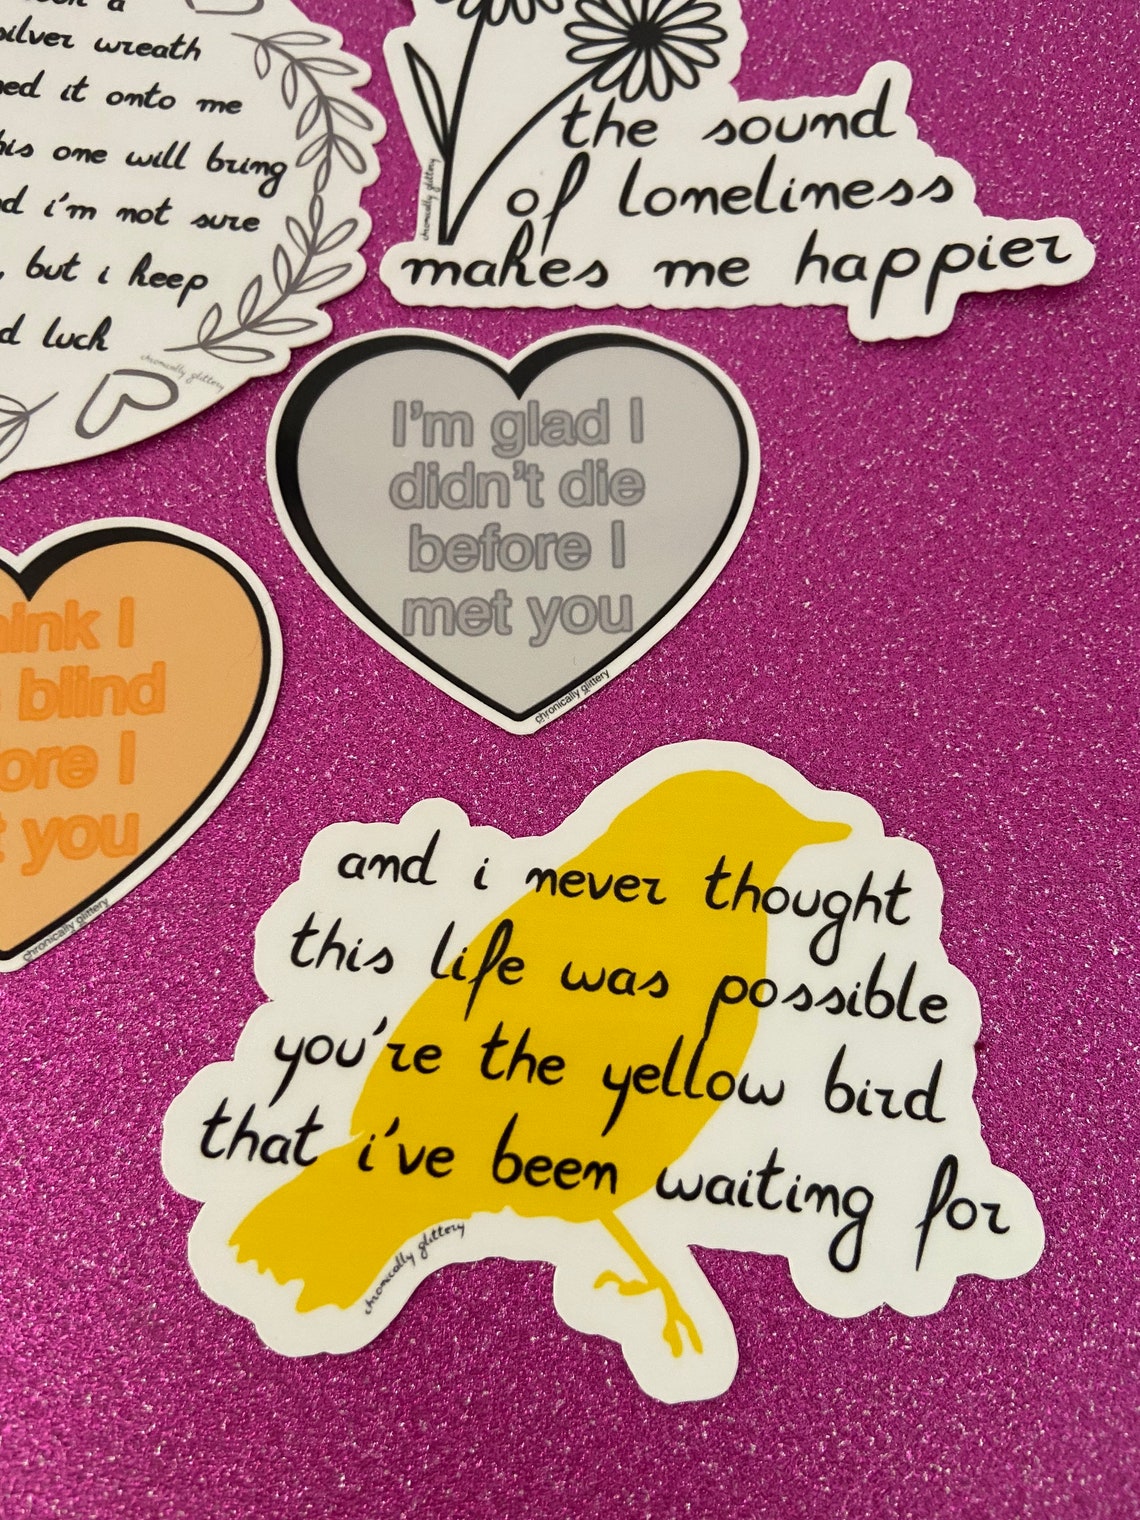 a
silver wreath
it onto me
one will bring
i'm not sure
but i keep
luck
chronically glittery
the sound
of loneliness
makes me happier
chronically glittery
I'm glad I
didn't die
before I
met you
chronically glittery
I
blind
I
you
chronically glittery
and i never thought
this life was possible
you're the yellow bird
that i've been waiting for
chronically glittery